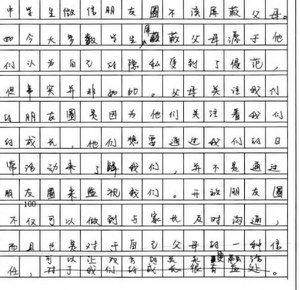 中学生做信朋友圈不该屏蔽父母。
如今大多数学生屏蔽父母源于他
们认为自己的隐私受到了侵犯，
但事实并非如此。父母关注我们
的朋友圈是因为他们关注着我们
的成长，他们想要通过我们的日
常活动来了解我们，并不是通过
朋友圈来监视我们。开放朋友圈
100
不仅可以做到与家长及时沟通，
而且也是对于自己父母的一种信
任，对于我们的成长很有益处。
可以正